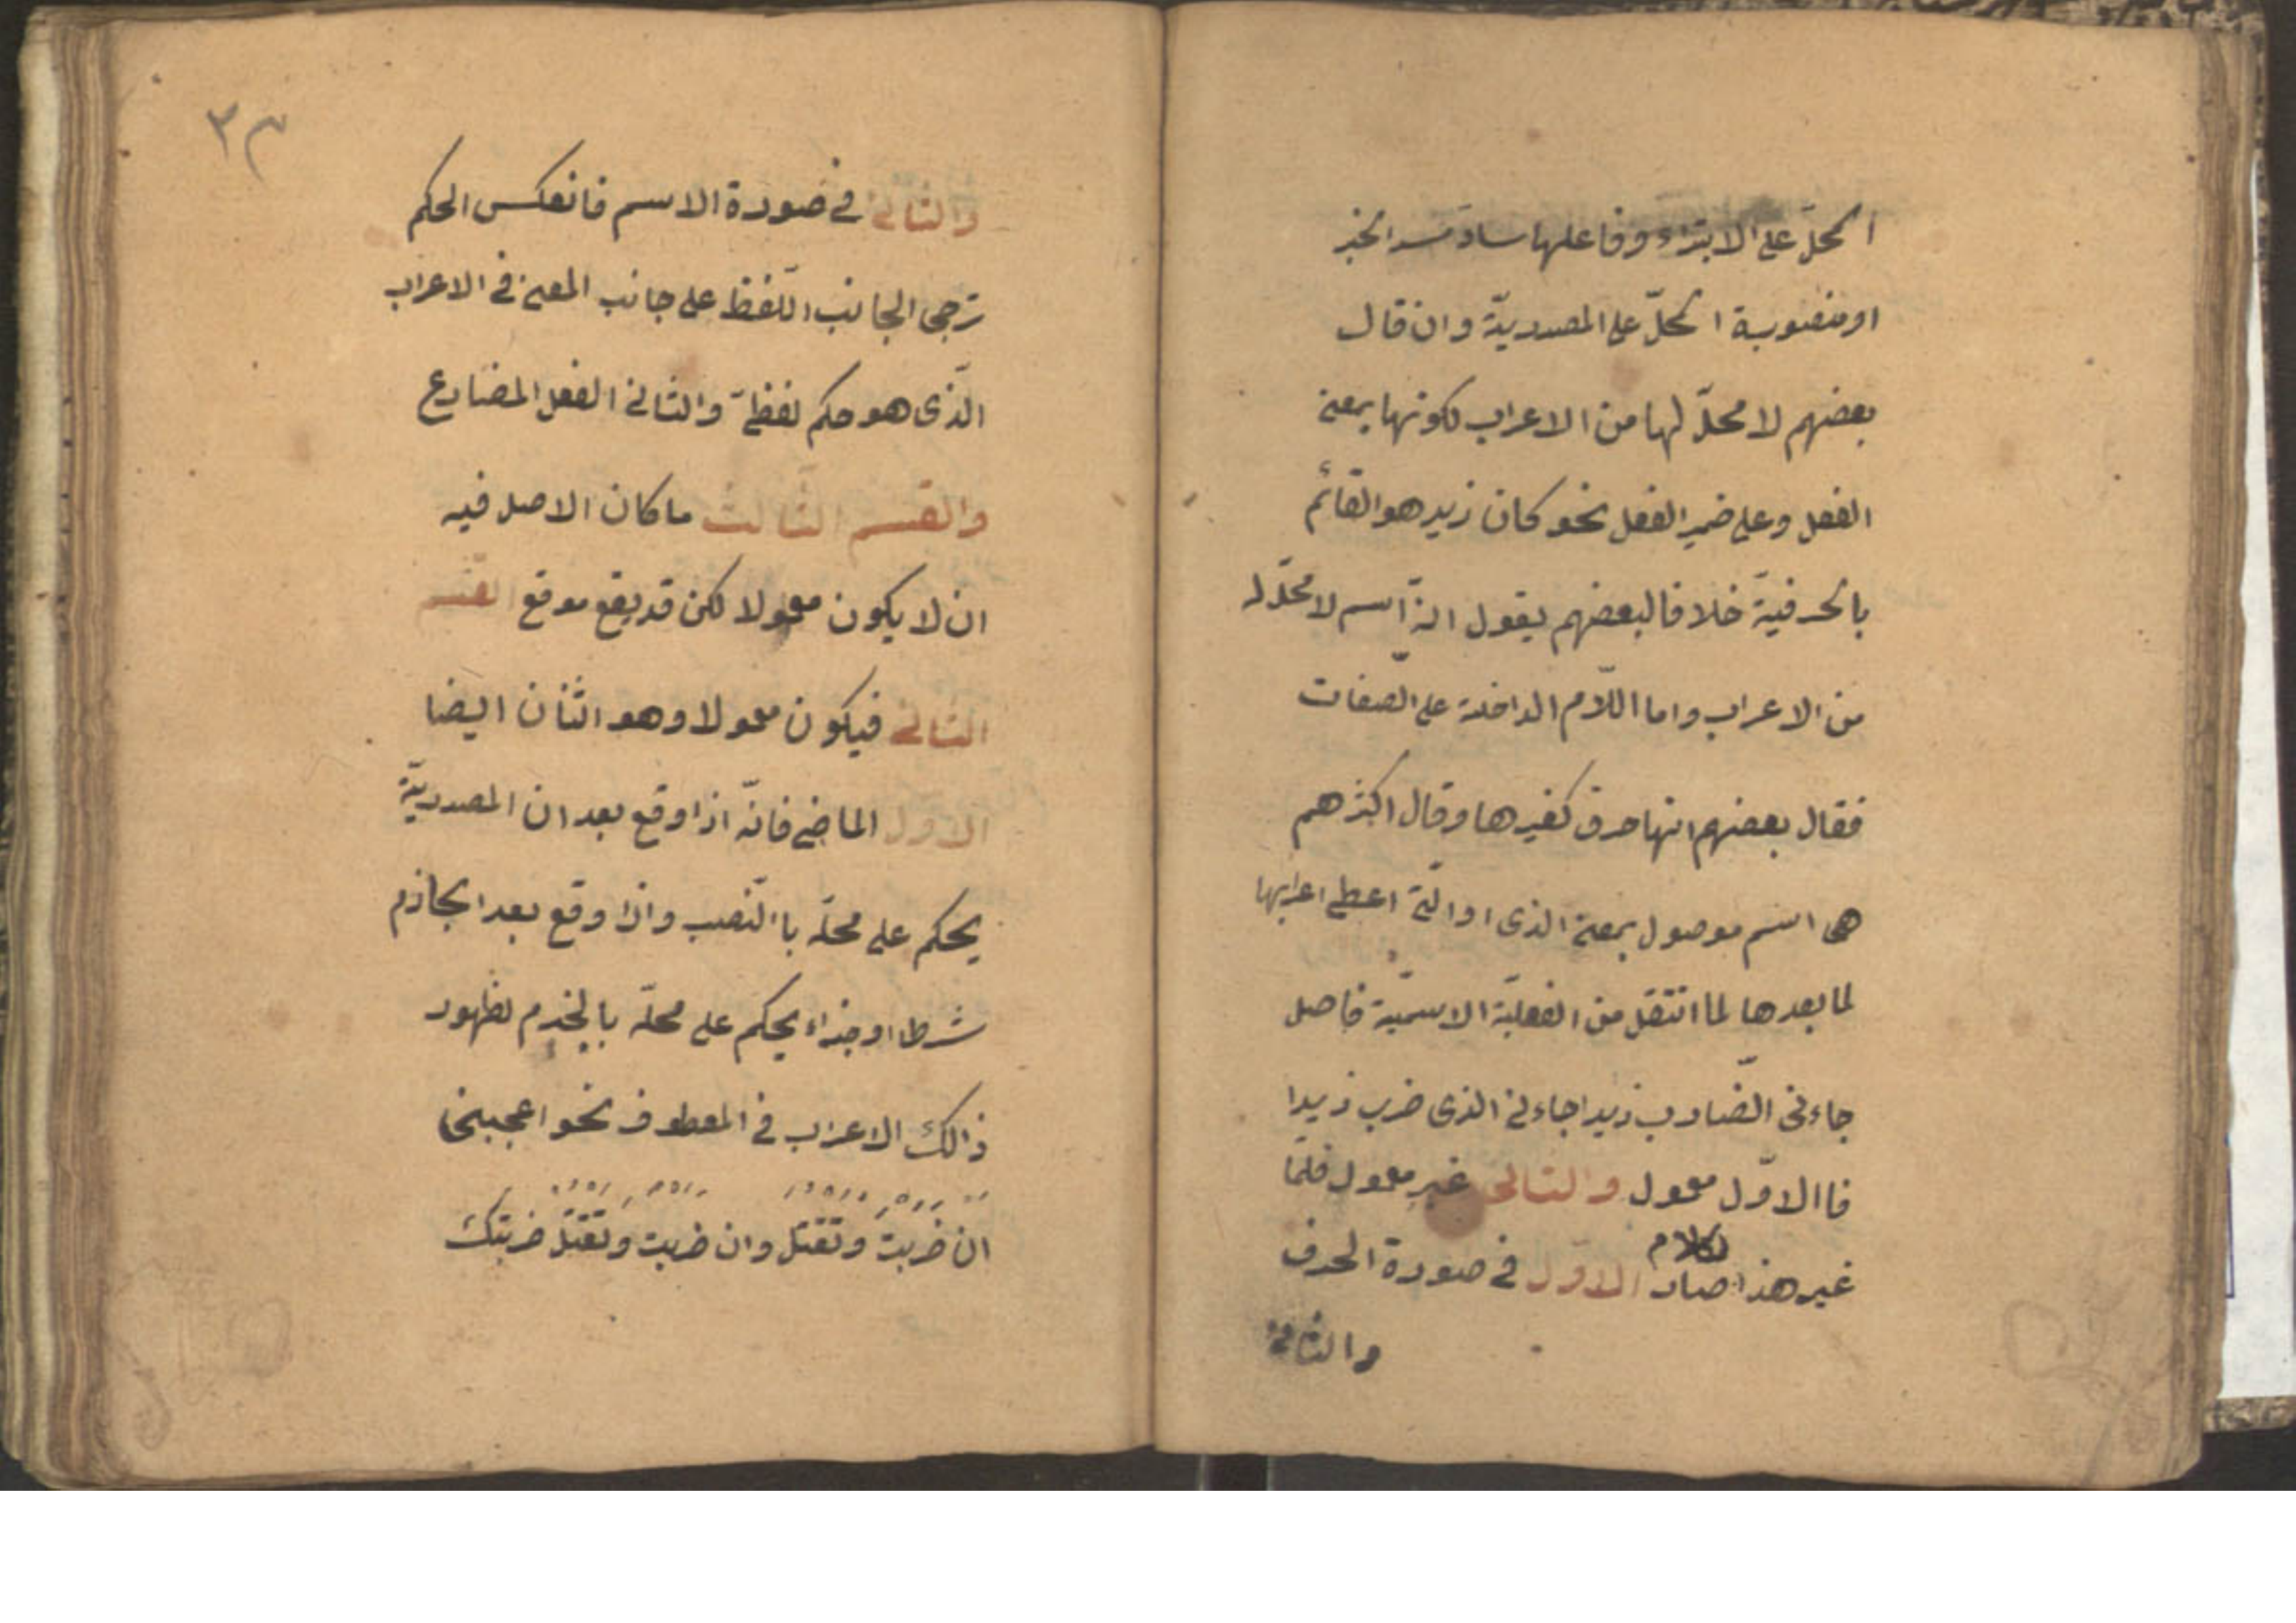 المحلّ على الابتداء وفاعلها سادّ مسد الخبر
او منصوبة المحلّ على المصدريّة وان قال
بعضهم لا محلّ لها من الاعراب لكونها بمعنى
الفعل وعلى ضمير الفصل نحو كان زيد هو القائم
بالحرفيّة خلافا لبعضهم يقول انّه اسم لا محلّ له
من الاعراب واما اللّام الداخلة على الصّفات
فقال بعضهم انها حرف كغيرها وقال اكثرهم
هى اسم موصول بمعنى الذى او الّتى اعطى اعرابها
لما بعدها لما انتقل من الفعليّة الاسميّة فاصل
جاءنى الضّارب زيدا جاءنى الذى ضرب زيدا
فاالاوّل معمول والثانى غير معمول فلمّا
غير هذا الكلام صار الاوّل فى صورة الحرف
والثانى
٣٣
والثانى فى صورة الاسم فانعكس الحكم
ترجى الجانب اللّفظ على جانب المعنى فى الاعراب
الّذى هو حكم لفظىّ والثانى الفعل المضارع
والقسم الثّالث ما كان الاصل فيه
ان لا يكون معمولا لكن قد يقع موقع القسم
الثانى فيكون معمولا وهو اثنان ايضا
الاول الماضى فانّه اذا وقع بعد ان المصدريّة
يحكم على محلّه باالنّصب واذا وقع بعد الجازم
شرطا او جزاء يحكم على محلّه بالجزم لظهور
ذالك الاعراب فى المعطوف نحو اعجبنى
ان ضربت وتقتل وان ضربت وتقتل ضربتك